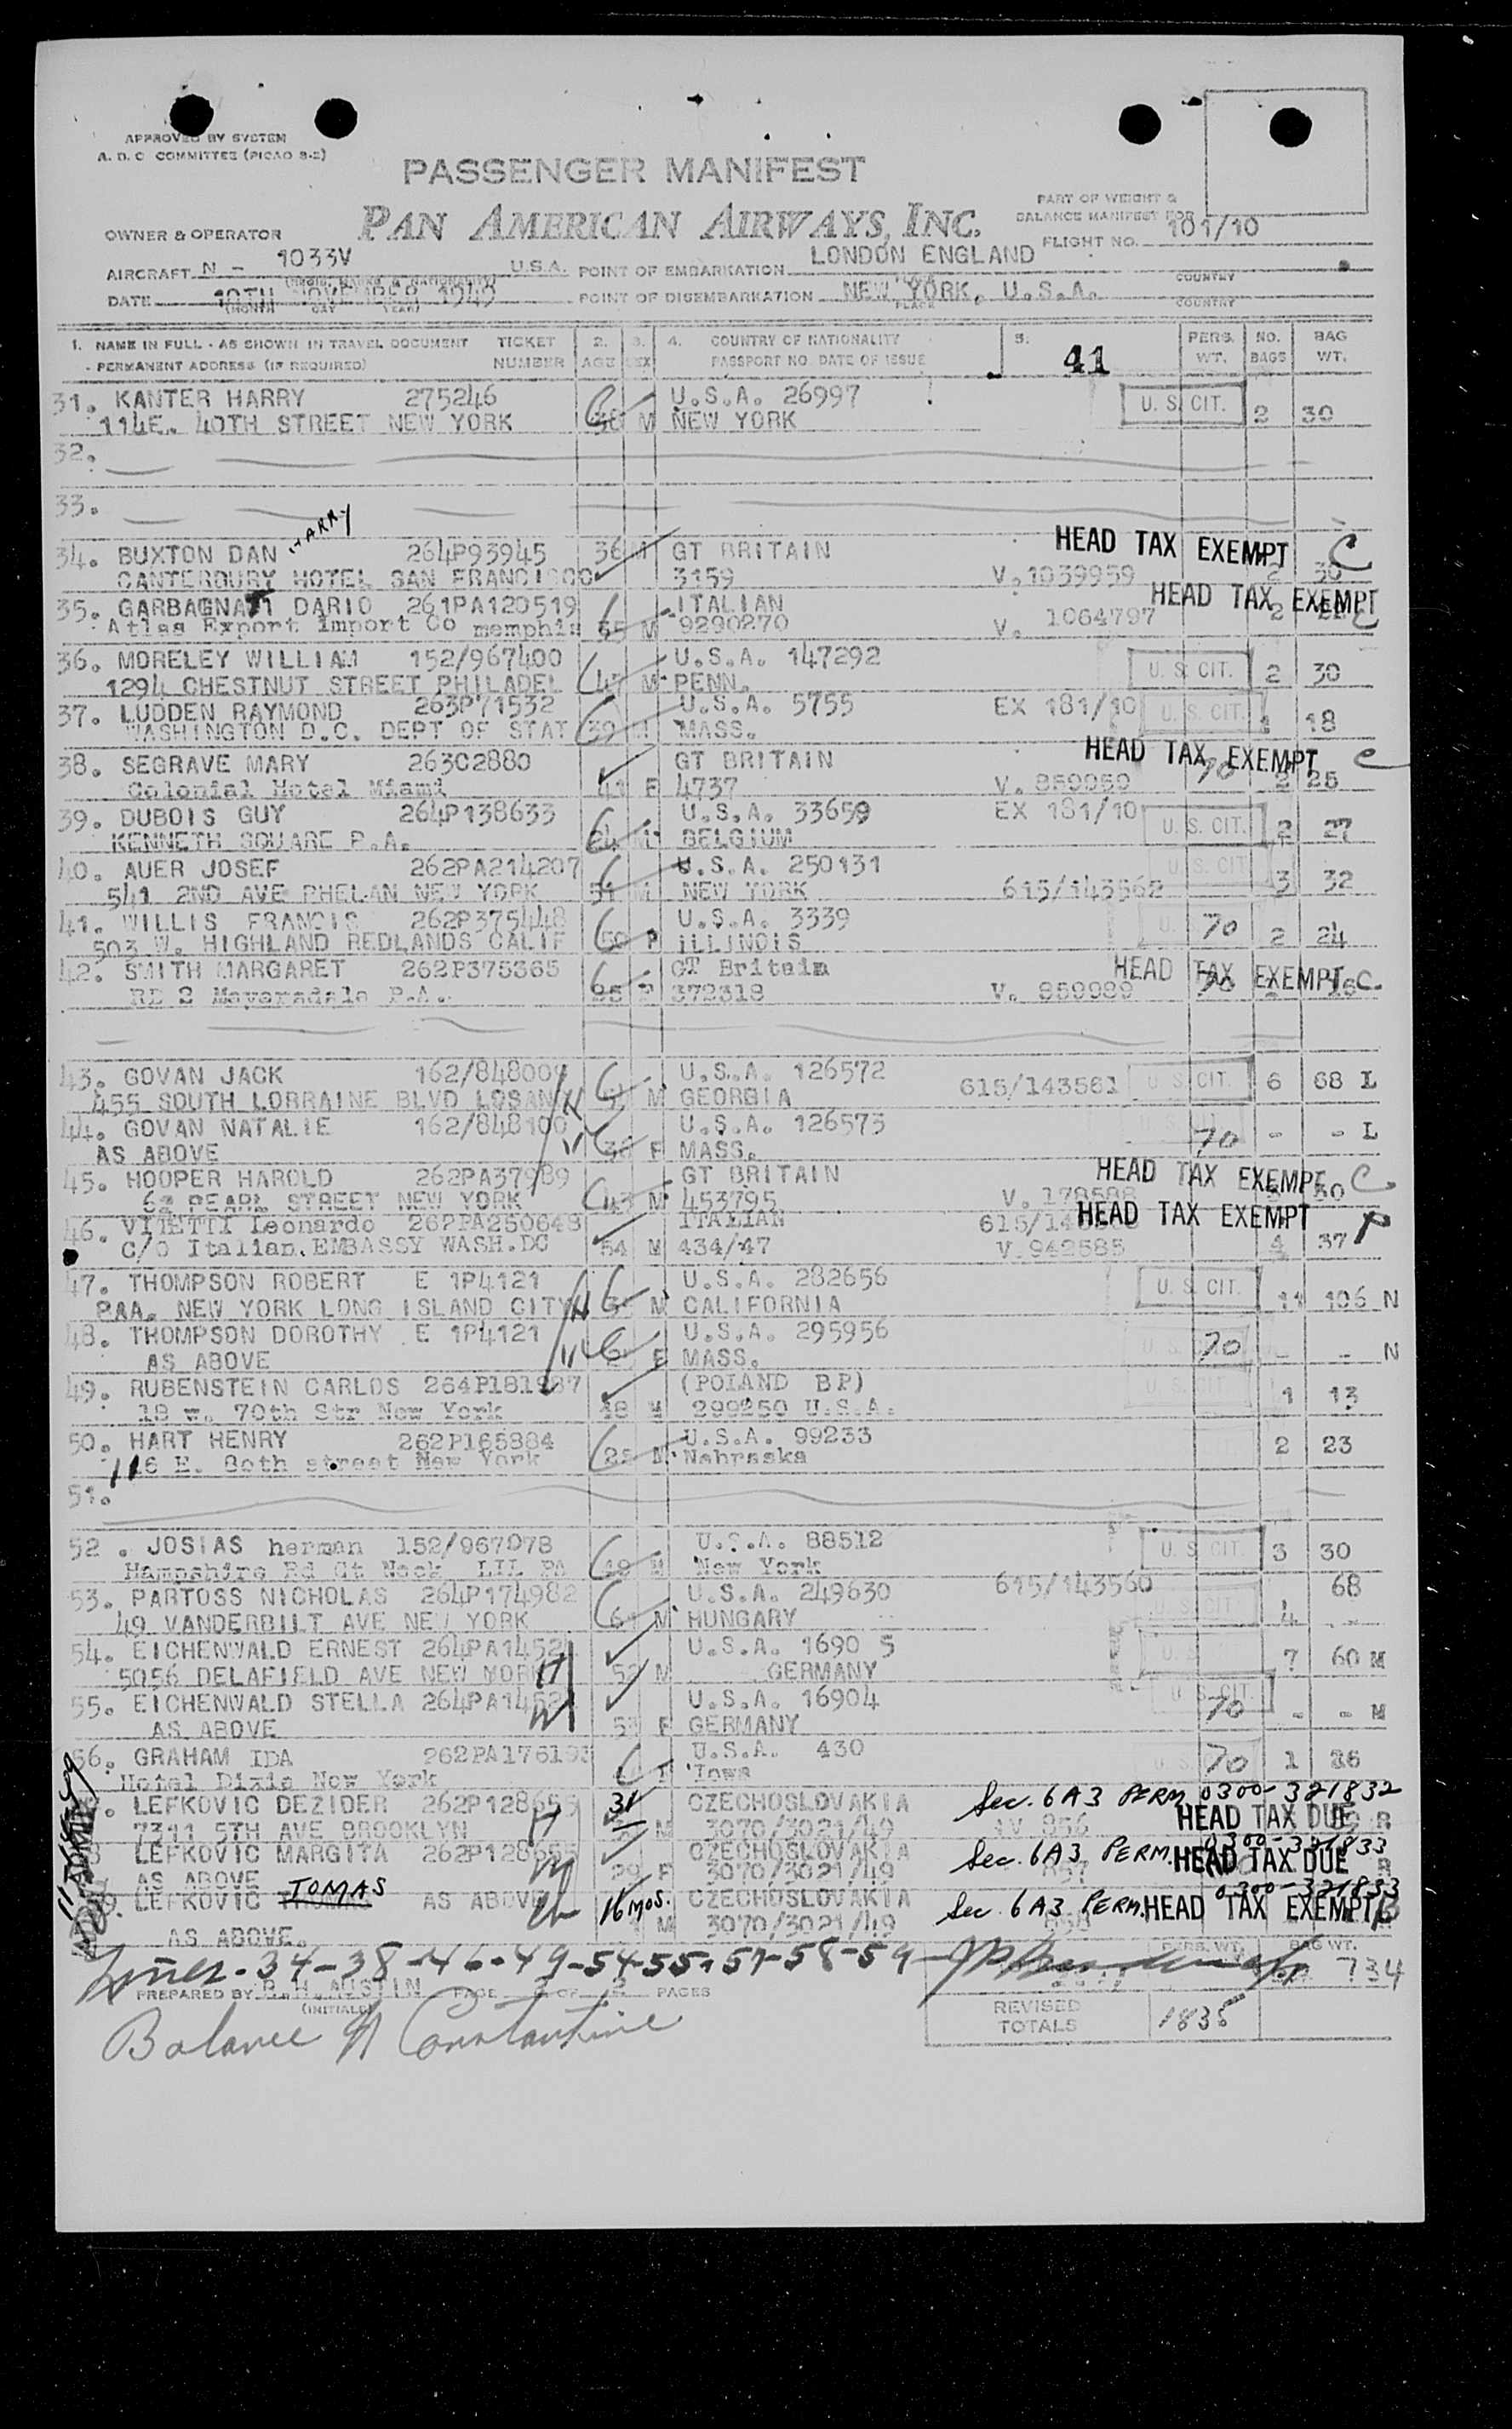 APPROVED BY SYSTEM
A. D. C COMMITTEE (PICAO 8-2)
PASSENGER MANIFEST
PAN AMERICAN AIRWAYS, INC.
PART OF WEIGHT &
BALANCE MANIFEST FOR
FLIGHT NO. 101/10
OWNER & OPERATOR
AIRCRAFT N - 1033V U.S.A. POINT OF EMBARKATION LONDON ENGLAND COUNTRY
DATE 10TH NOVEMBER 1949 POINT OF DISEMBARKATION NEW YORK, U.S.A. COUNTRY
(MONTH DAY YEAR) PLACE
1. NAME IN FULL - AS SHOWN IN TRAVEL DOCUMENT TICKET 2. 3. 4. COUNTRY OF NATIONALITY 5. 41 PERS. NO. BAG
- PERMANENT ADDRESS (IF REQUIRED) NUMBER AGE SEX PASSPORT NO. DATE OF ISSUE WT. BAGS WT.
31. KANTER HARRY 275246 U.S.A. 26997 U. S. CIT.
114E. 40TH STREET NEW YORK M NEW YORK 2 30
32.
33.
HARRY
34. BUXTON DAN 264P93945 36 M GT BRITAIN HEAD TAX EXEMPT C
CANTERBURY HOTEL SAN FRANCISCO 3159 V.1039959 2 30
35. GARBAGNATI DARIO 261PA120519 ITALIAN HEAD TAX EXEMPT
Atlas Export Import Co memphis M 9290270 V. 1064797 2 C
36. MORELEY WILLIAM 152/967400 U.S.A. 147292 U. S. CIT. 2 30
1294 CHESTNUT STREET PHILADEL M PENN.
37. LUDDEN RAYMOND 263P71532 U.S.A. 5755 EX 181/10 U. S. CIT. 1 18
WASHINGTON D.C. DEPT OF STAT 39 M MASS.
38. SEGRAVE MARY 26302880 GT BRITAIN HEAD TAX EXEMPT C
Colonial Hotel Miami 41 F 4737 V. 859959 70 2 25
39. DUBOIS GUY 264P138633 U.S.A. 33659 EX 181/10 U. S. CIT. 2 27
KENNETH SQUARE P.A. 24 M BELGIUM
40. AUER JOSEF 262PA214207 U.S.A. 250131 U. S. CIT
541 2ND AVE PHELAN NEW YORK 51 M NEW YORK 615/143562 3 32
41. WILLIS FRANCIS 262P375448 U.S.A. 3339 70 2 24
503 W. HIGHLAND REDLANDS CALIF 50 F ILLINOIS
42. SMITH MARGARET 262P375365 GT Britain HEAD TAX EXEMPT C.
RD 2 Meyersdale P.A. 25 F 372318 V. 859989 70
43. GOVAN JACK 162/848009 U.S.A. 126572 615/143561 U. S. CIT. 6 68 L
455 SOUTH LORRAINE BLVD LOSAN H M GEORGIA
44. GOVAN NATALIE 162/848100 W U.S.A. 126573 70 - - L
AS ABOVE F MASS.
45. HOOPER HAROLD 262PA37989 GT BRITAIN HEAD TAX EXEMPT C
62 PEARL STREET NEW YORK 43 M 453795 V. 178588 30
46. VITETTI Leonardo 262PA250648 ITALIAN HEAD TAX EXEMPT P
C/O Italian. EMBASSY WASH.DC 54 M 434/47 V.942585 4 37
47. THOMPSON ROBERT E 1P4121 U.S.A. 282656 U. S. CIT. 11 106 N
PAA. NEW YORK LONG ISLAND CITY H M CALIFORNIA
48. THOMPSON DOROTHY E 1P4121 U.S.A. 295956 70 - - N
AS ABOVE W F MASS.
49. RUBENSTEIN CARLOS 264P181937 (POLAND BP) U. S. CIT 1 13
18 w. 70th Str New York 48 M 299250 U.S.A.
50. HART HENRY 262P165884 U.S.A. 99233 2 23
116 E. 80th street New York M Nebraska
51.
52. JOSIAS herman 152/967078 U.S.A. 88512 U. S. CIT. 3 30
Hampshire Rd Gt Neck M New York
53. PARTOSS NICHOLAS 264P174982 U.S.A. 249630 615/143560 U. S. CIT. 68
49 VANDERBILT AVE NEW YORK M HUNGARY 4 -
54. EICHENWALD ERNEST 264PA1452 U.S.A. 1690 5 7 60 M
5056 DELAFIELD AVE NEW YORK H 52 M GERMANY
55. EICHENWALD STELLA 264PA1452 U.S.A. 16904 U. S. CIT. 70 - - M
AS ABOVE W F GERMANY
56. GRAHAM IDA U.S.A. 430 70 1 26
Hotel Dixie New York F Iowa
LEFKOVIC DEZIDER 262P128655 31 CZECHOSLOVAKIA Sec. 6A3 PERM 0300-321832
7311 5TH AVE BROOKLYN H M 3070/3021/49 HEAD TAX DUE R
LEFKOVIC MARGITA 262P128655 CZECHOSLOVAKIA Sec. 6A3 PERM. 0300-321833
AS ABOVE W 29 F 3070/3021/49 HEAD TAX DUE R
LEFKOVIC TOMAS AS ABOVE ch 16 mos. CZECHOSLOVAKIA Sec. 6A3 PERM. 0300-321833
AS ABOVE. M 3070/3021/49 HEAD TAX EXEMPT
Lines - 34-38-46-49-54-55-57-58-59 PERS. WT. BAG WT. 734
PREPARED BY R.H. AUSTIN PAGE OF PAGES
(INITIALS)
REVISED TOTALS 1835
Balance H Constantine